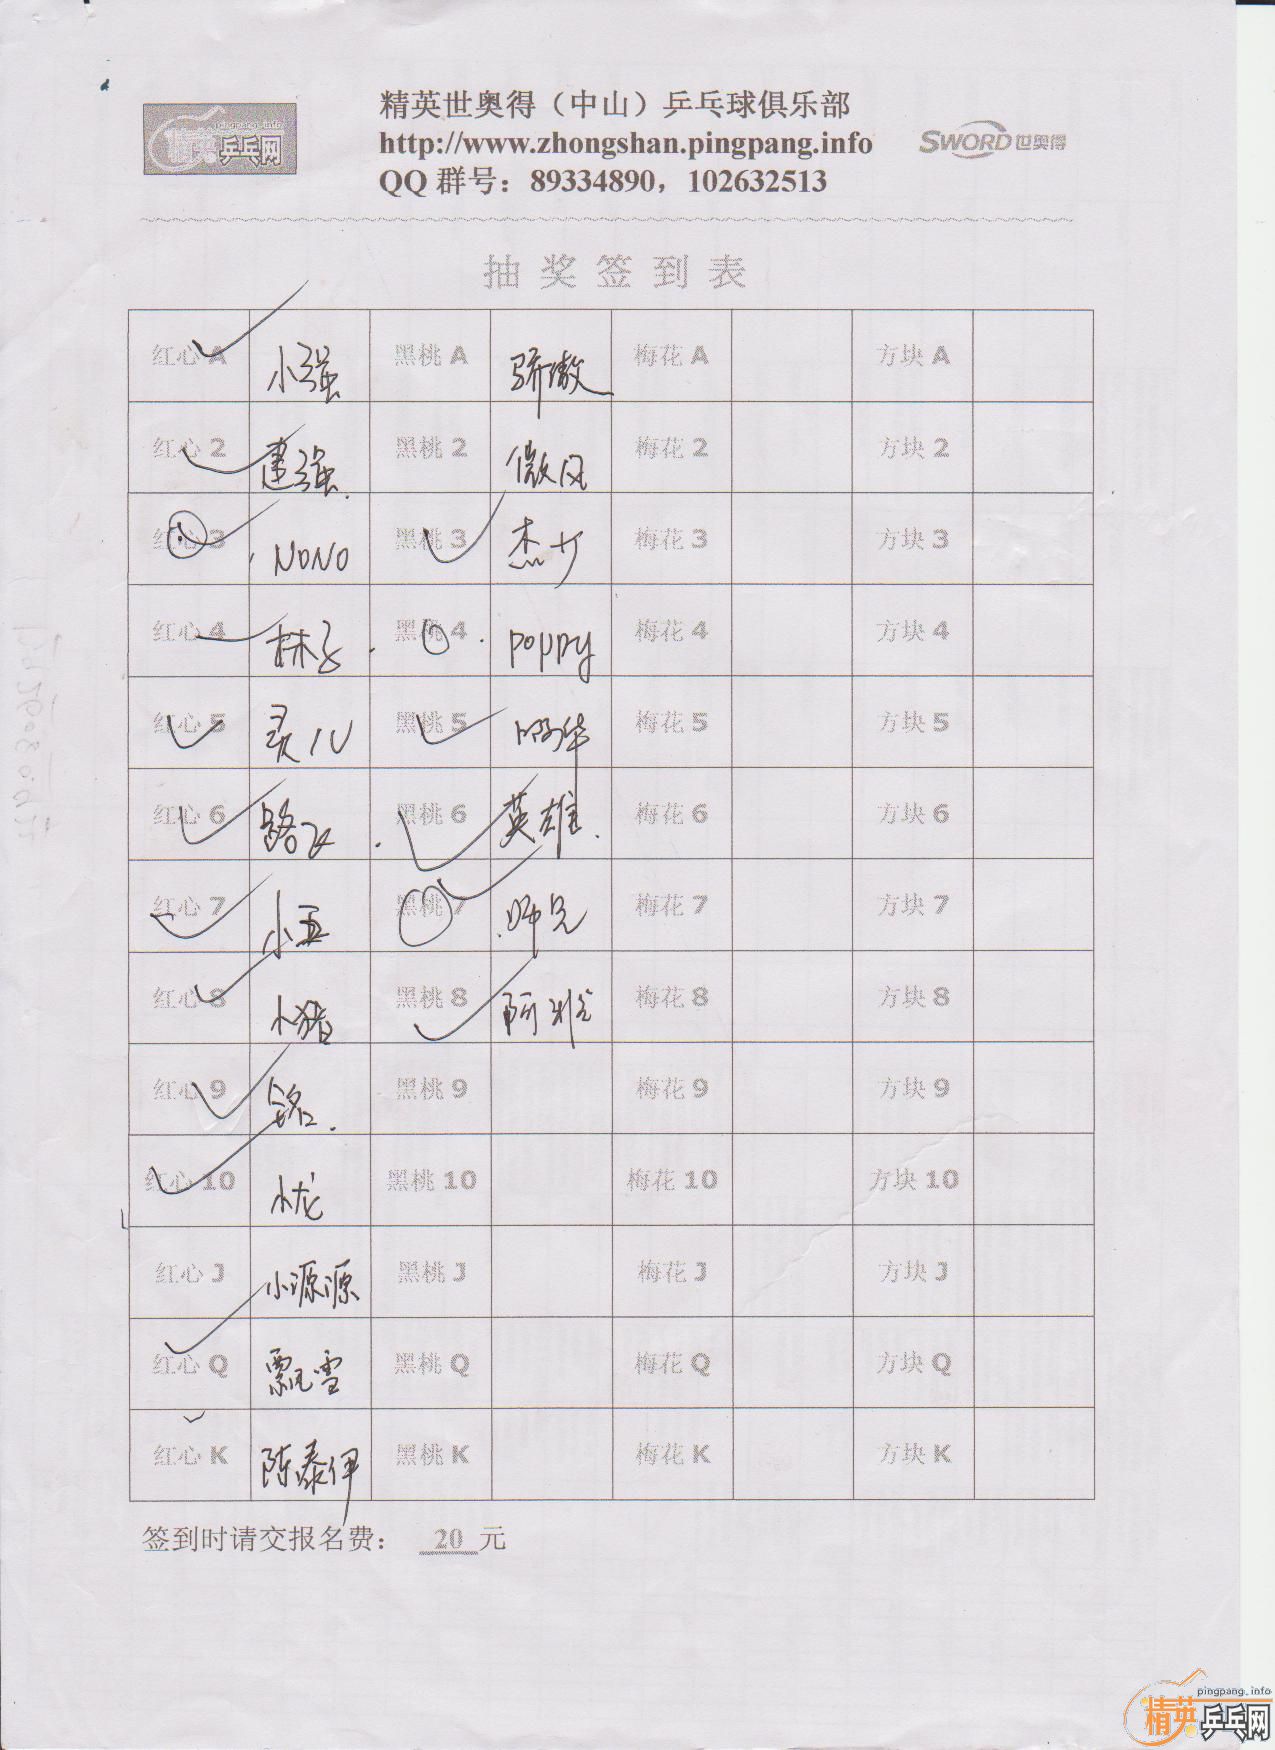 pingpang.info
精英乒乓网
精英世奥得（中山）乒乓球俱乐部
http://www.zhongshan.pingpang.info
QQ 群号：89334890，102632513
SWORD世奥得
抽奖签到表
红心 A 小强 黑桃 A 骄傲 梅花 A 方块 A
红心 2 建强. 黑桃 2 微风 梅花 2 方块 2
红心 3 NONO 黑桃 3 杰少 梅花 3 方块 3
红心 4 林子 黑桃 4 poppy 梅花 4 方块 4
红心 5 灵儿 黑桃 5 啊华 梅花 5 方块 5
红心 6 路飞 黑桃 6 英雄. 梅花 6 方块 6
红心 7 小五 黑桃 7 师兄 梅花 7 方块 7
红心 8 小猪 黑桃 8 阿 梅花 8 方块 8
红心 9 铭. 黑桃 9 梅花 9 方块 9
红心 10 小龙 黑桃 10 梅花 10 方块 10
红心 J 小源源 黑桃 J 梅花 J 方块 J
红心 Q 飘雪 黑桃 Q 梅花 Q 方块 Q
红心 K 陈泰伊 黑桃 K 梅花 K 方块 K
签到时请交报名费： 20 元
pingpang.info
精英乒乓网